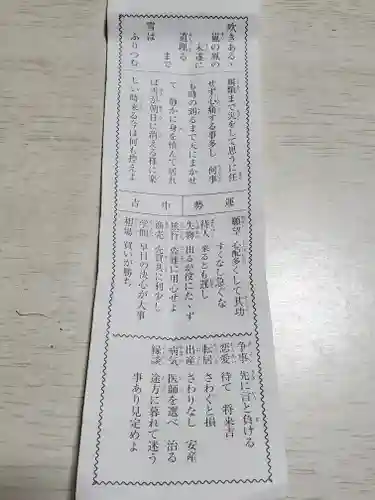 吹きある、
嵐の風の
末遂に
道埋る
まで
雪は
ふりつむ
親類まで災をして思うに任
せず心痛する事多し 何事
も時の到るまで天にまかせ
て 静かに身を慎んで居れ
ば雪が朝日に消える様に楽
しい時来る今は何も控えよ
運勢 中吉
願望 心配多くして其功
すくなし急ぐな
待人 来るとも遅し
失物 出るが役にた、ず
旅行 盗難に用心せよ
商売 売買共に利少し
学問 早目の決心が大事
相場 買いが勝ち
争事 先に言と負ける
恋愛 待て 将来吉
転居 さわぐと損
出産 さわりなし 安産
病気 医師を選べ 治る
縁談 途方に暮れて迷う
事あり見定めよ